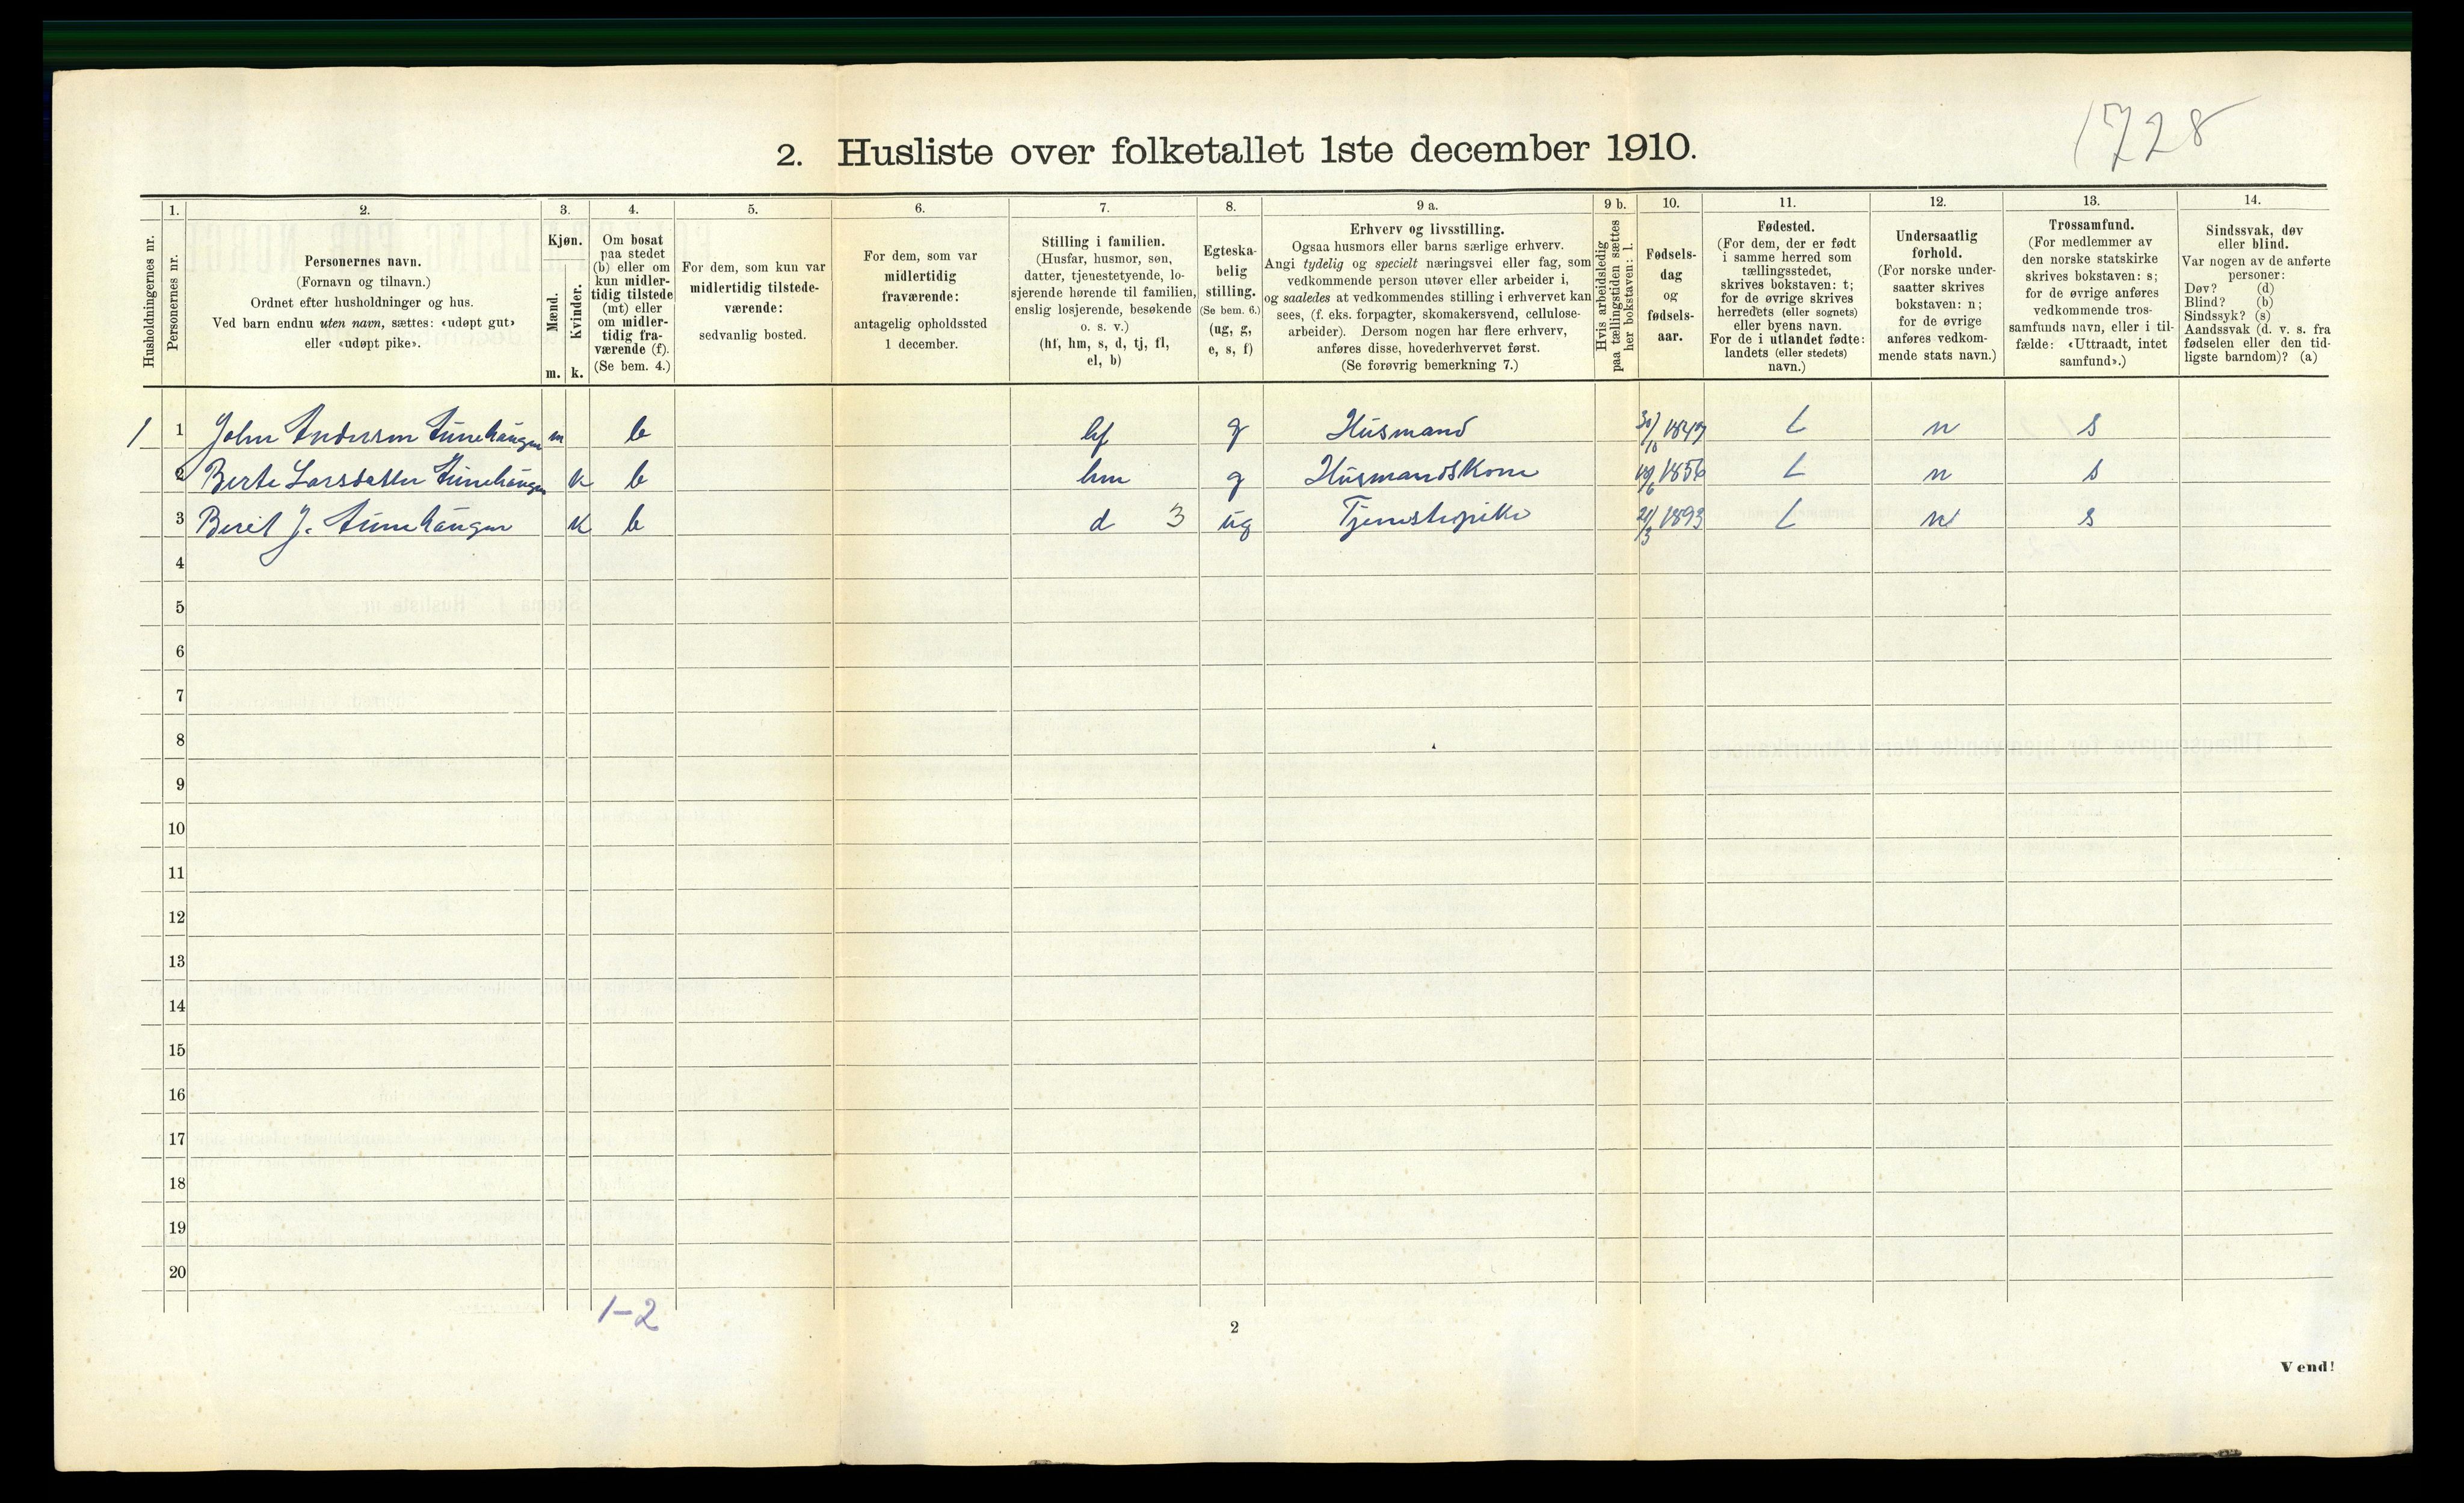 1728
2. Husliste over folketallet 1ste december 1910.
Husholdningernes nr.
1.
Personernes nr.
2.
Personernes navn.
(Fornavn og tilnavn.)
Ordnet efter husholdninger og hus.
Ved barn endnu uten navn, sættes: «udøpt gut»
eller «udøpt pike».
3.
Kjøn.
Mænd.
Kvinder.
m. k.
4.
Om bosat
paa stedet
(b) eller om
kun midler-
tidig tilstede
(mt) eller
om midler-
tidig fra-
værende (f).
(Se bem. 4.)
5.
For dem, som kun var
midlertidig tilstede-
værende:
sedvanlig bosted.
6.
For dem, som var
midlertidig
fraværende:
antagelig opholdssted
1 december.
7.
Stilling i familien.
(Husfar, husmor, søn,
datter, tjenestetyende, lo-
sjerende hørende til familien,
enslig losjerende, besøkende
o. s. v.)
(hf, hm, s, d, tj, fl,
el, b)
8.
Egteska-
belig
stilling.
(Se bem. 6.)
(ug, g,
e, s, f)
9 a.
Erhverv og livsstilling.
Ogsaa husmors eller barns særlige erhverv.
Angi tydelig og specielt næringsvei eller fag, som
vedkommende person utøver eller arbeider i,
og saaledes at vedkommendes stilling i erhvervet kan
sees, (f. eks. forpagter, skomakersvend, cellulose-
arbeider). Dersom nogen har flere erhverv,
anføres disse, hovederhvervet først.
(Se forøvrig bemerkning 7.)
9 b.
Hvis arbeidsledig
paa tællingstiden sættes
her bokstaven: l.
10.
Fødsels-
dag
og
fødsels-
aar.
11.
Fødested.
(For dem, der er født
i samme herred som
tællingsstedet,
skrives bokstaven: t;
for de øvrige skrives
herredets (eller sognets)
eller byens navn.
For de i utlandet fødte:
landets (eller stedets)
navn.)
12.
Undersaatlig
forhold.
(For norske under-
saatter skrives
bokstaven: n;
for de øvrige
anføres vedkom-
mende stats navn.)
13.
Trossamfund.
(For medlemmer av
den norske statskirke
skrives bokstaven: s;
for de øvrige anføres
vedkommende tros-
samfunds navn, eller i til-
fælde: «Uttraadt, intet
samfund».)
14.
Sindssvak, døv
eller blind.
Var nogen av de anførte
personer:
Døv? (d)
Blind? (b)
Sindssyk? (s)
Aandssvak (d. v. s. fra
fødselen eller den tid-
ligste barndom)? (a)
1 1 John Andersen Aunehaugen m b hf g Husmand 30/10 1849 t n s
2 Berte Larsdatter Aunehaugen k b hm g Husmandskone 1856 t n s
3 Berit J. Aunehaugen k b d 3 ug Tjenestepike 21/3 1893 t n s
4
5
6
7
8
9
10
11
12
13
14
15
16
17
18
19
20
1-2
2
Vend!